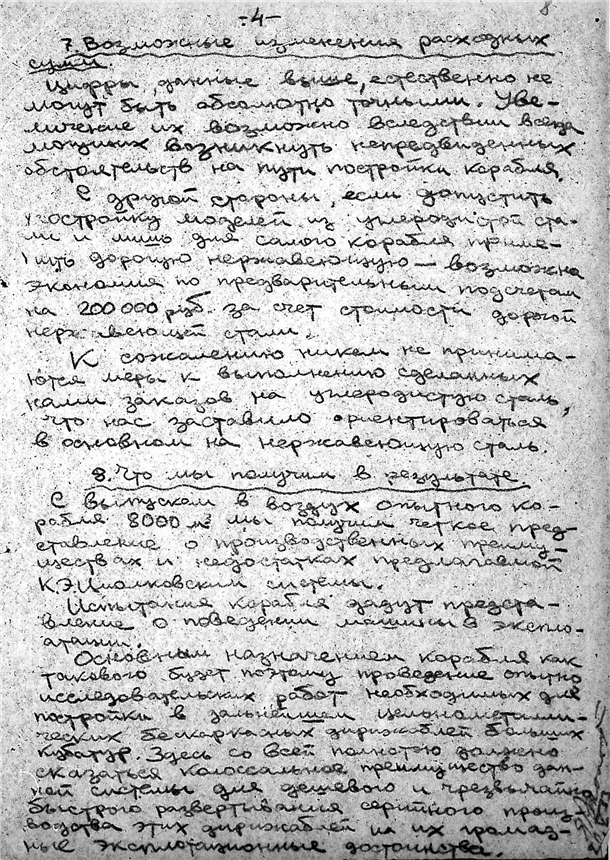 -4-
8
7. Возможные изменения расходных
сумм.
Цифры, данные выше, естественно не
могут быть абсолютно точными. Уве-
личение их возможно вследствии всегда
могущих возникнуть непредвиденных
обстоятельств на пути постройки корабля.
С другой стороны, если допустить
постройку моделей из углеродистой ста-
ли и лишь для самого корабля приме-
нить дорогую нержавеющую — возможна
экономия по предварительным подсчетам
на 200 000 руб. за счет стоимости дорогой
нержавеющей стали.
К сожалению никем не принима-
ются меры к выполнению сделанных
нами заказов на углеродистую сталь,
что нас заставило ориентироваться
в основном на нержавеющую сталь.
8. Что мы получим в результате
С выпуском в воздух опытного ко-
рабля 8000 м³ мы получим четкое пред-
ставление о производственных преиму-
ществах и недостатках предлагаемой
К.Э.Циолковским системы.
Испытания корабля дадут предста-
вление о поведении машины в экспло-
атации.
Основным назначением корабля как
такового будет поэтому проведение опытно
исследовательских работ необходимых для
постройки в дальнейшем цельнометалли-
ческих бескаркасных дирижаблей больших
кубатур. Здесь со всей полнотою должно
сказаться колоссальное преимущество дан-
ной системы для дешевого и чрезвычайно
быстрого развертывания серийного произ-
водства этих дирижаблей и их громад-
ные эксплотационные достоинства.